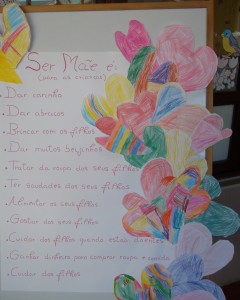 Ser Mãe é:
(para as crianças)
• Dar carinho
• Dar abraços
• Brincar com os filhos
• Dar muitos beijinhos
• Tratar da roupa dos seus filhos
• Ter saudades dos seus filhos
• Alimentar os seus filhos
• Gostar dos seus filhos
• Cuidar dos filhos quando estão doentes
• Ganhar dinheiro para comprar roupa e comida
• Cuidar dos filhos